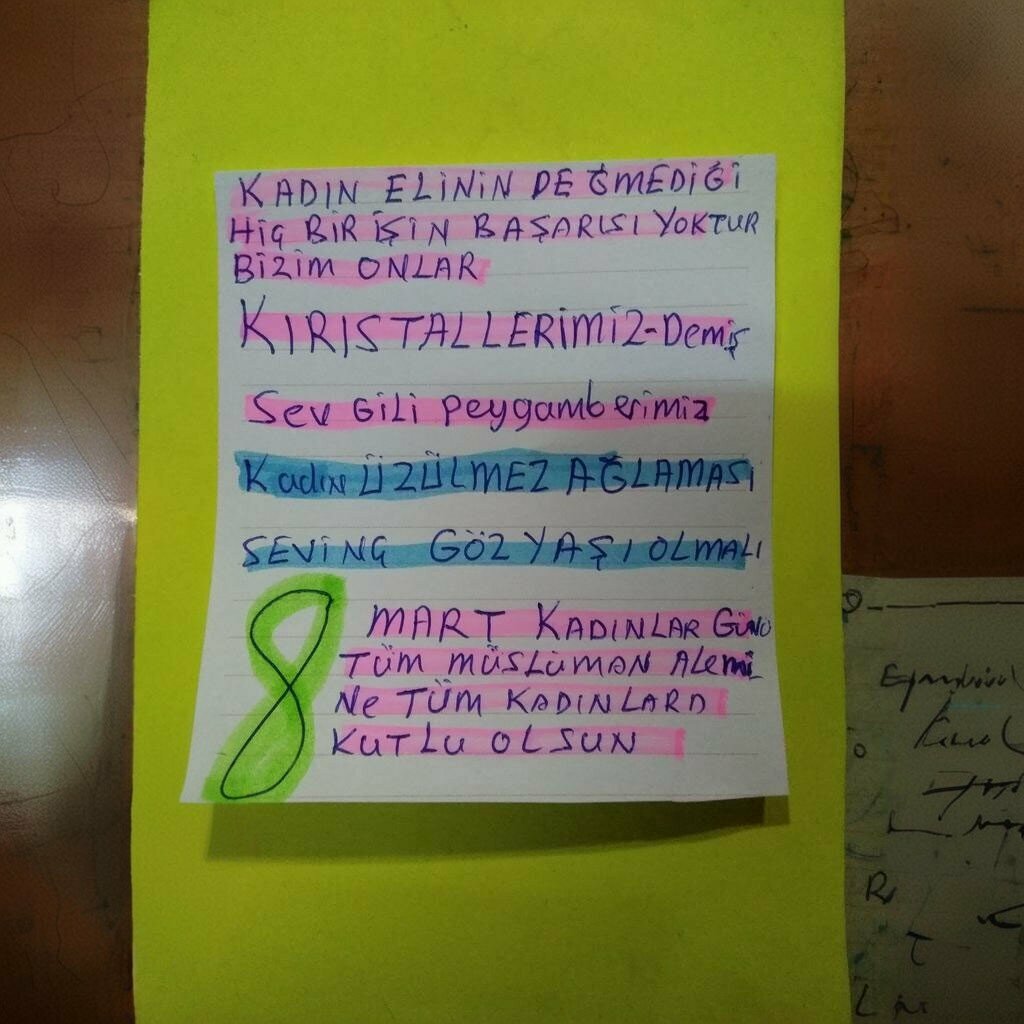 KADIN ELİNİN DEĞMEDİĞİ
HİÇ BİR İŞİN BAŞARISI YOKTUR
BİZİM ONLAR
KIRISTALLERİMİZ-Demiş
Sev GİLİ peygamberimiz
Kadın ÜZÜLMEZ AĞLAMASI
SEVİNÇ GÖZ YAŞI OLMALI
8 MART KADINLAR GÜNÜ
TÜM MÜSLÜMAN ALEMİ
Ne TÜM KADINLARA
KUTLU OLSUN